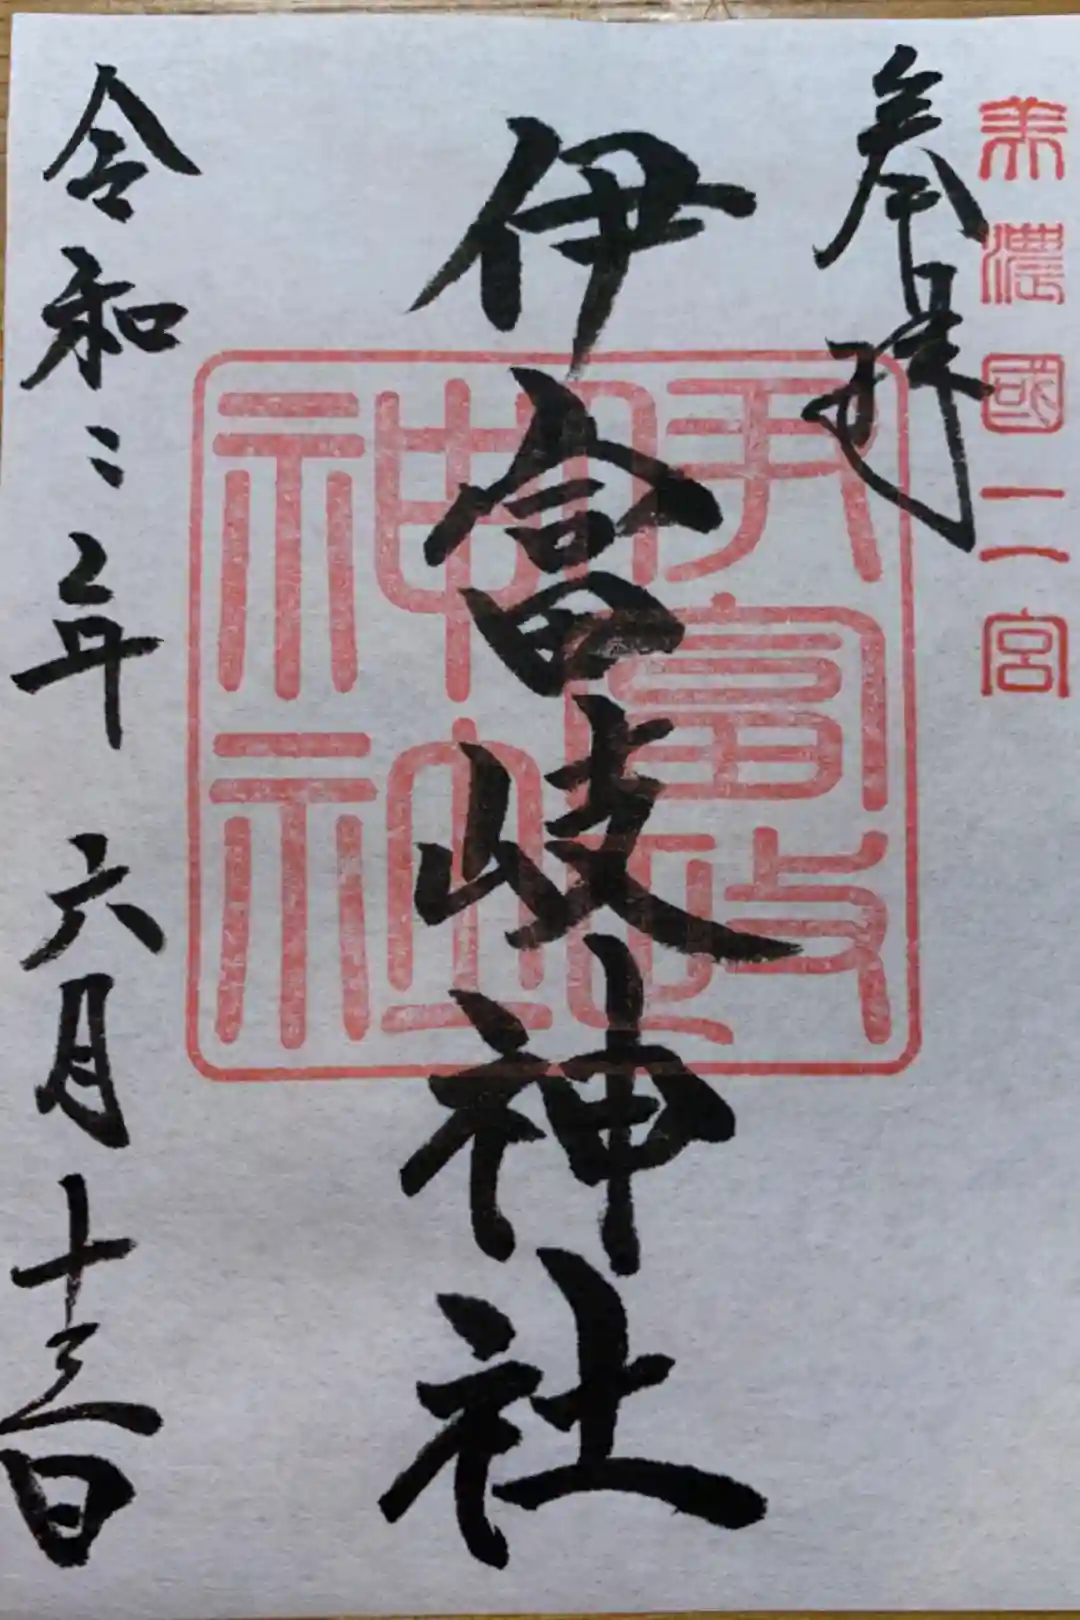 美濃國二宮
奉拝
伊富岐神社
伊富岐
神社
令和二年 六月十三日